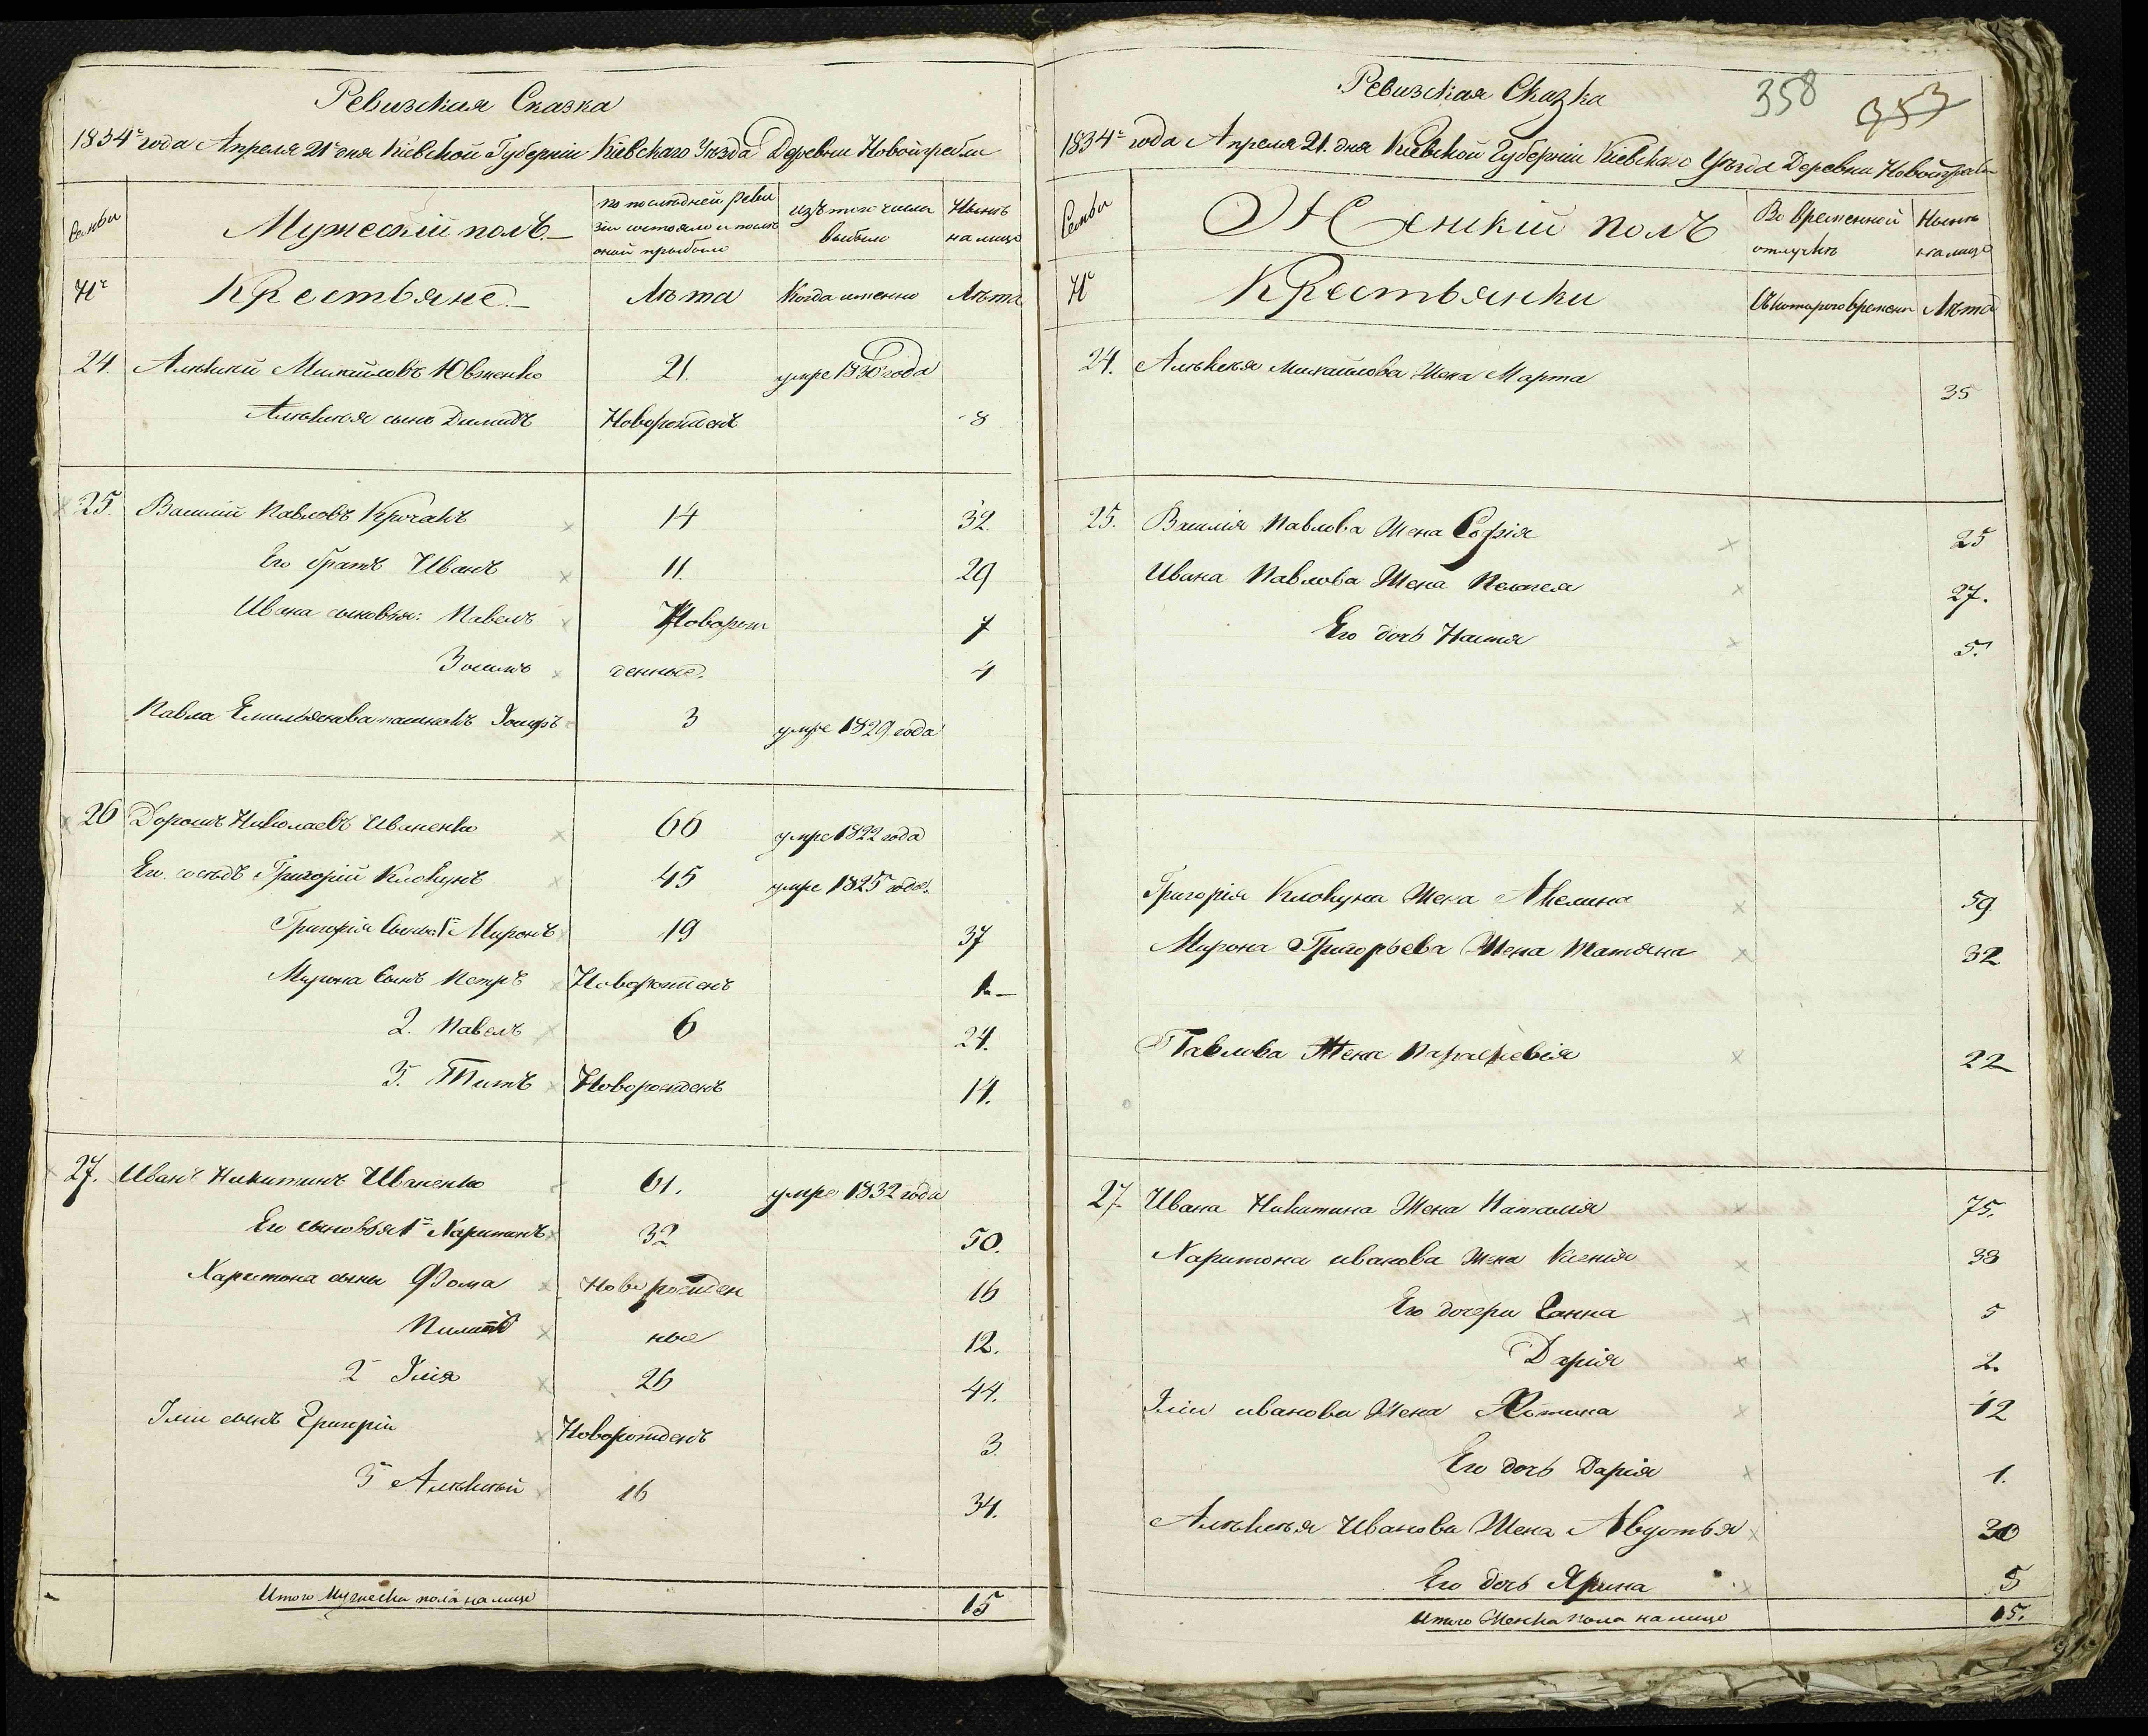 Ревизская Сказка
1834го года Апреля 21го дня Кіевской Губерніи Кіевскаго Уѣзда Деревни Новойгребли
Семьи
Мужескій полъ.
по последней реви
зіи состояло и послѣ
оной прибыли
Изъ того числа
выбыло
Нынѣ
на лицо
№
Крестьяне.
Лѣта
Когда именно
Лѣта
24. Алѣксѣй Михайловъ Ювженко 21. умре 1830 года
Алѣксѣя сынъ Димидъ Новорожденъ 8
25. Василій Павловъ Кричакъ 14 32.
Его братъ Иванъ 11. 29
Ивана сыновья: Павелъ Новорож 7
Зосимъ денные. 4
Павла Емильянова пасынокъ Іосифъ 3 умре 1829 года
26 Дорошъ Николаевъ Иваненко 66 умре 1822 года
Его сосѣдъ Григорій Клокунъ 45 умре 1825 года.
Григорія Сыновья 1й Миронъ 19 37
Мирона Сынъ Петръ Новорожденъ
2. Павелъ 6 24.
3. Титъ Новорожденъ 14.
27. Иванъ Никитинъ Иваненко 61. умре 1832 года
Его сыновья 1й Харитонъ 32 50.
Харитона сыны Фома Новорожден 16
Пилипъ ные 12.
2 Ілія 26 44.
Іліи сынъ Григорій Новорожденъ 3.
3 Алѣксѣй 16 34.
Итого Мужеска пола на лицо 15
Ревизская Сказка
358
353
1834го года Апреля 21. дня Кіевской Губерніи Кіевскаго Уѣзда Деревни Новойгребли
Семьи
Женскій полъ
Во временной
отлучкѣ
Нынѣ
на лицо
№
Крестьянки
Съ котораго времени
Лѣта
24. Алѣксѣя Михайлова Жена Марта 35
25. Василія Павлова Жена Софія 25
Ивана Павлова Жена Пелагея 27.
Его дочь Настя 5.
Григорія Клокуна Жена Акелина 59
Мирона Григорьева Жена Татіяна 32
Павлова Жена Параскевія 22
27. Ивана Никитина Жена Наталія 75.
Харитона иванова Жена Ксенія 38
Его дочери Ганна 5
Дарія 2.
Іліи иванова Жена 42
Его дочь Дарія 1.
Алѣксѣя Иванова Жена Авдотья 30
Его дочь Ярина 5
Итого Женска пола на лицо 15.